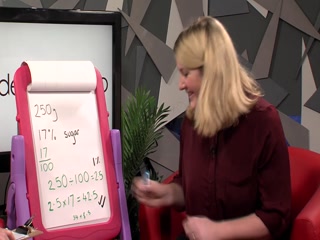 de
250g
17% sugar
17
100
1%
250÷100=2.5
2.5×17=42.5